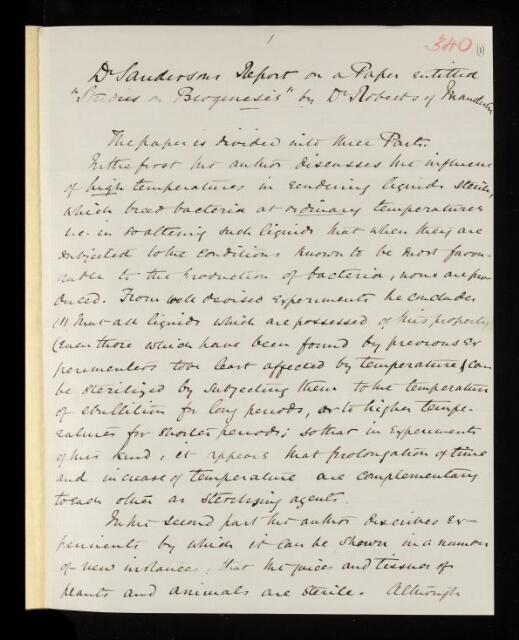 1
340 (1)
Dr Sandersons Report on a Paper entitled
"Studies on Biogenesis" by Dr Roberts of Manchester
The paper is divided into three Parts.
In the first the author discusses the influence
of high temperatures in rendering liquids sterile,
which breed bacteria at ordinary temperatures
i.e. in so altering such liquids that when they are
subjected to the conditions known to be most favou-
rable to the production of bacteria, none are pro
duced. From well devised experiments he concludes
(1) that all liquids which are possessed of this property
(even those which have been found by previous ex
perimenters to be least affected by temperature) can
be sterilized by subjecting them to the temperature
of ebullition for long periods, or to higher tempe-
ratures for shorter periods; so that in experiments
of this kind, it appears that prolongation of time
and increase of temperature are complementary
to each other as sterilising agents.
In the second part the author describes ex-
periments by which it can be shown in a number
of new instances, that the juices and tissues of
plants and animals are sterile. Although